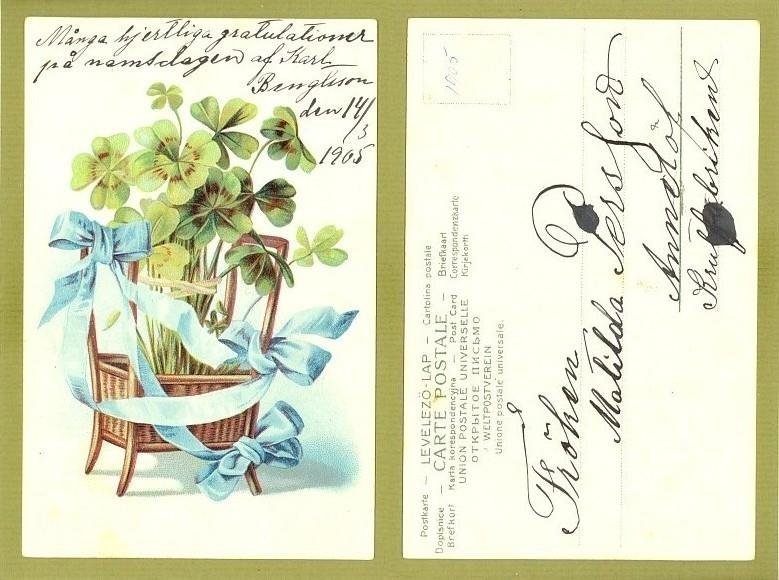 Många hjertliga gratulationer
på namsdagen af Karl
Bengtson
den 14/3
1905
1905
Postkarte – LEVELEZŐ-LAP – Cartolina postale
Dopisnice – CARTE POSTALE – Briefkaart
Brefkort Karta korespondencyjna – Post Card Correspondenzkarte
UNION POSTALE UNIVERSELLE Kirjekortti
ОТКРЫТОЕ ПИСЬМО
WELTPOSTVEREIN
Unione postale universale.
Fröken
Matilda Persson
Annelöf